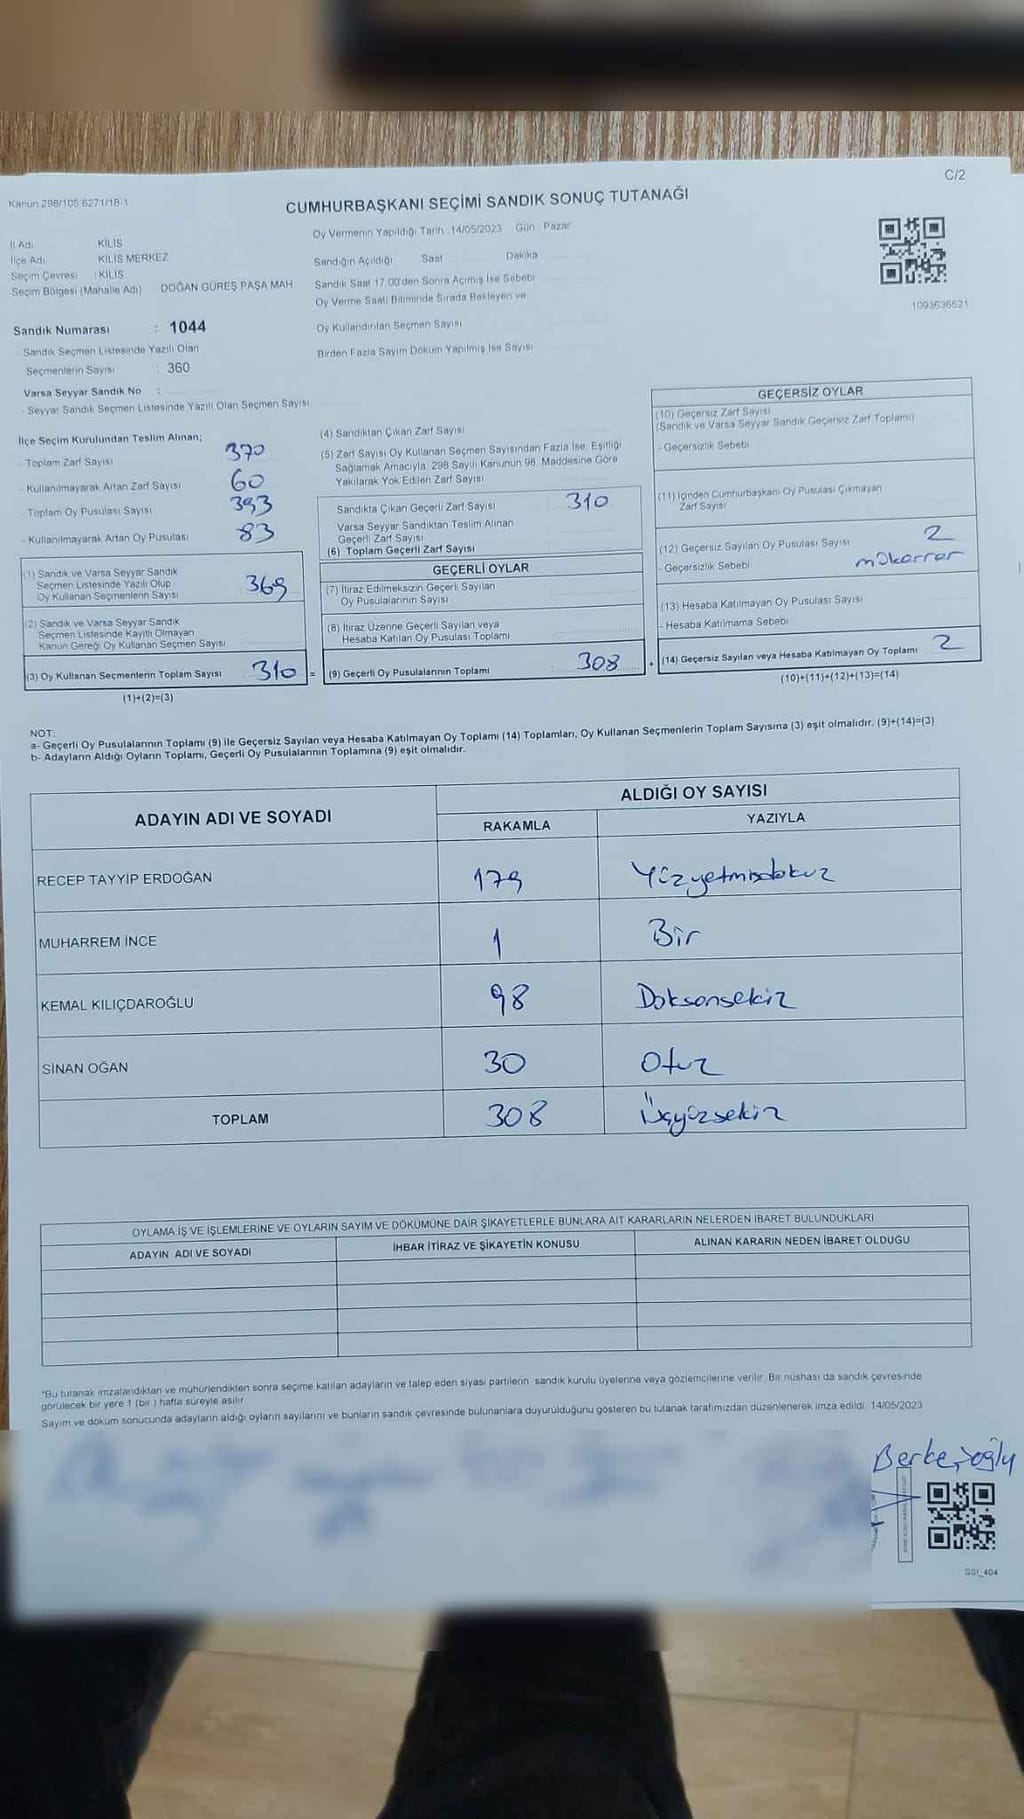 C/2
Kanun 298/105 6271/18-1
CUMHURBAŞKANI SEÇİMİ SANDIK SONUÇ TUTANAĞI
Oy Vermenin Yapıldığı Tarih :14/05/2023 Gün : Pazar
İl Adı : KİLİS
İlçe Adı : KİLİS MERKEZ
Seçim Çevresi : KİLİS
Seçim Bölgesi (Mahalle Adı) : DOĞAN GÜREŞ PAŞA MAH.
Sandığın Açıldığı Saat Dakika
Sandık Saat 17:00'den Sonra Açılmış İse Sebebi
Oy Verme Saati Bitiminde Sırada Bekleyen ve
Oy Kullandırılan Seçmen Sayısı
Birden Fazla Sayım Döküm Yapılmış İse Sayısı
1093636521
Sandık Numarası : 1044
- Sandık Seçmen Listesinde Yazılı Olan
Seçmenlerin Sayısı : 360
Varsa Seyyar Sandık No :
- Seyyar Sandık Seçmen Listesinde Yazılı Olan Seçmen Sayısı
İlçe Seçim Kurulundan Teslim Alınan;
- Toplam Zarf Sayısı 370
- Kullanılmayarak Artan Zarf Sayısı 60
- Toplam Oy Pusulası Sayısı 393
- Kullanılmayarak Artan Oy Pusulası 83
(1) Sandık ve Varsa Seyyar Sandık
Seçmen Listesinde Yazılı Olup
Oy Kullanan Seçmenlerin Sayısı 369
(2) Sandık ve Varsa Seyyar Sandık
Seçmen Listesinde Kayıtlı Olmayan
Kanun Gereği Oy Kullanan Seçmen Sayısı
(3) Oy Kullanan Seçmenlerin Toplam Sayısı 310 =
(1)+(2)=(3)
(4) Sandıktan Çıkan Zarf Sayısı
(5) Zarf Sayısı Oy Kullanan Seçmen Sayısından Fazla İse, Eşitliği
Sağlamak Amacıyla, 298 Sayılı Kanunun 98. Maddesine Göre
Yakılarak Yok Edilen Zarf Sayısı
Sandıkta Çıkan Geçerli Zarf Sayısı 310
Varsa Seyyar Sandıktan Teslim Alınan
Geçerli Zarf Sayısı
(6) Toplam Geçerli Zarf Sayısı
GEÇERLİ OYLAR
(7) İtiraz Edilmeksizin Geçerli Sayılan
Oy Pusulalarının Sayısı
(8) İtiraz Üzerine Geçerli Sayılan veya
Hesaba Katılan Oy Pusulası Toplamı
(9) Geçerli Oy Pusulalarının Toplamı 308 +
GEÇERSİZ OYLAR
(10) Geçersiz Zarf Sayısı
(Sandık ve Varsa Seyyar Sandık Geçersiz Zarf Toplamı)
- Geçersizlik Sebebi
(11) İçinden Cumhurbaşkanı Oy Pusulası Çıkmayan
Zarf Sayısı
(12) Geçersiz Sayılan Oy Pusulası Sayısı 2
- Geçersizlik Sebebi mükerrer
(13) Hesaba Katılmayan Oy Pusulası Sayısı
- Hesaba Katılmama Sebebi
(14) Geçersiz Sayılan veya Hesaba Katılmayan Oy Toplamı : 2
(10)+(11)+(12)+(13)=(14)
NOT:
a- Geçerli Oy Pusulalarının Toplamı (9) ile Geçersiz Sayılan veya Hesaba Katılmayan Oy Toplamı (14) Toplamları, Oy Kullanan Seçmenlerin Toplam Sayısına (3) eşit olmalıdır. (9)+(14)=(3)
b- Adayların Aldığı Oyların Toplamı, Geçerli Oy Pusulalarının Toplamına (9) eşit olmalıdır.
ADAYIN ADI VE SOYADI
ALDIĞI OY SAYISI
RAKAMLA YAZIYLA
RECEP TAYYİP ERDOĞAN 179 Yüzyetmişdokuz
MUHARREM İNCE 1 Bir
KEMAL KILIÇDAROĞLU 98 Doksansekiz
SİNAN OĞAN 30 Otuz
TOPLAM 308 Üçyüzsekiz
OYLAMA İŞ VE İŞLEMLERİNE VE OYLARIN SAYIM VE DÖKÜMÜNE DAİR ŞİKAYETLERLE BUNLARA AİT KARARLARIN NELERDEN İBARET BULUNDUKLARI
ADAYIN ADI VE SOYADI İHBAR İTİRAZ VE ŞİKAYETİN KONUSU ALINAN KARARIN NEDEN İBARET OLDUĞU
*Bu tutanak imzalandıktan ve mühürlendikten sonra seçime katılan adayların ve talep eden siyasi partilerin sandık kurulu üyelerine veya gözlemcilerine verilir. Bir nüshası da sandık çevresinde
görülecek bir yere 1 (bir ) hafta süreyle asılır.
Sayım ve döküm sonucunda adayların aldığı oyların sayılarını ve bunların sandık çevresinde bulunanlara duyurulduğunu gösteren bu tutanak tarafımızdan düzenlenerek imza edildi. 14/05/2023
SGI_404